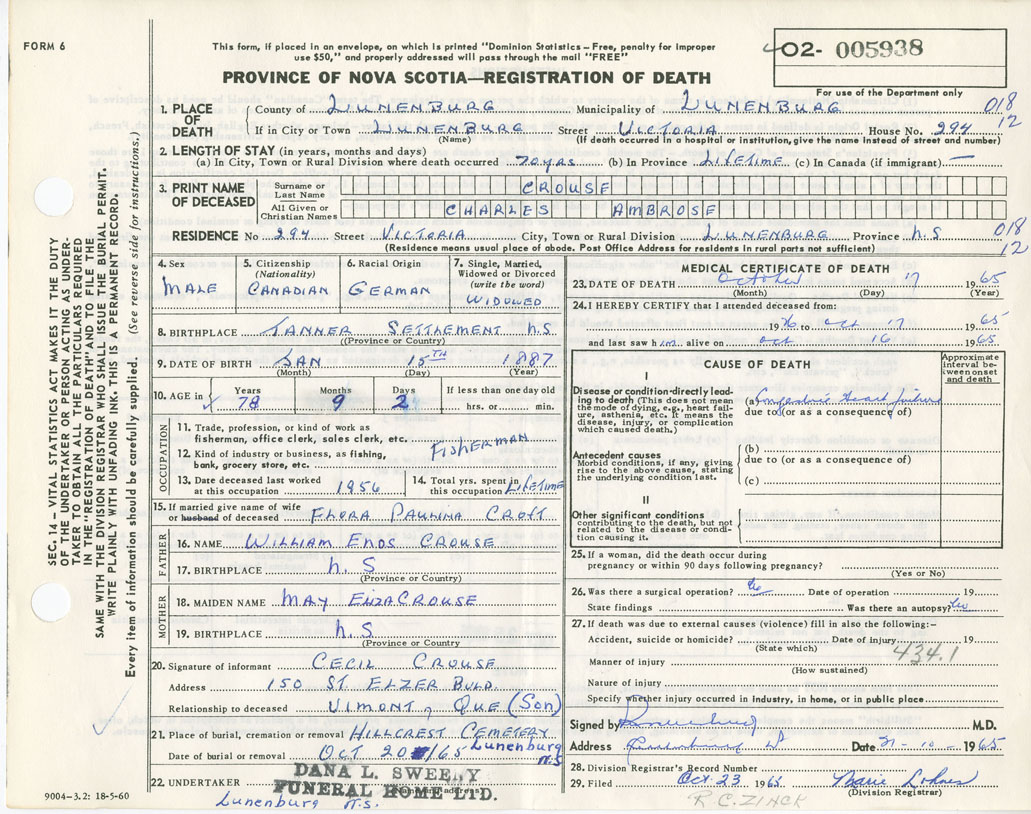 FORM 6
This form, if placed in an envelope, on which is printed "Dominion Statistics – Free, penalty for improper
use $50," and properly addressed will pass through the mail "FREE"
02- 005938
PROVINCE OF NOVA SCOTIA—REGISTRATION OF DEATH
For use of the Department only
1. PLACE OF DEATH
County of LUNENBURG Municipality of LUNENBURG 018
If in City or Town LUNENBURG Street VICTORIA House No. 294 12
(Name) (If death occurred in a hospital or institution, give the name instead of street and number)
2. LENGTH OF STAY (in years, months and days)
(a) In City, Town or Rural Division where death occurred 70 yrs (b) In Province LIFETIME (c) In Canada (if immigrant) —
3. PRINT NAME OF DECEASED
Surname or Last Name CROUSE
All Given or Christian Names CHARLES AMBROSE
RESIDENCE No 294 Street VICTORIA City, Town or Rural Division LUNENBURG Province N.S 018
(Residence means usual place of abode. Post Office Address for residents in rural parts not sufficient) 12
SEC. 14 – VITAL STATISTICS ACT MAKES IT THE DUTY
OF THE UNDERTAKER OR PERSON ACTING AS UNDER-
TAKER TO OBTAIN ALL THE PARTICULARS REQUIRED
IN THE "REGISTRATION OF DEATH" AND TO FILE THE
SAME WITH THE DIVISION REGISTRAR WHO SHALL ISSUE THE BURIAL PERMIT.
WRITE PLAINLY WITH UNFADING INK. THIS IS A PERMANENT RECORD.
Every item of information should be carefully supplied. (See reverse side for instructions.)
4. Sex
MALE
5. Citizenship
(Nationality)
CANADIAN
6. Racial Origin
GERMAN
7. Single, Married,
Widowed or Divorced
(write the word)
WIDOWED
8. BIRTHPLACE TANNER SETTLEMENT N.S
(Province or Country)
9. DATE OF BIRTH JAN 15TH 1887
(Month) (Day) (Year)
10. AGE in
Years Months Days If less than one day old
78 9 2 hrs. or min.
OCCUPATION
11. Trade, profession, or kind of work as
fisherman, office clerk, sales clerk, etc. FISHERMAN
12. Kind of industry or business, as fishing,
bank, grocery store, etc.
13. Date deceased last worked
at this occupation 1956
14. Total yrs. spent in
this occupation LIFETIME
15. If married give name of wife
or husband of deceased FLORA PAULINA CROFT
FATHER
16. NAME WILLIAM ENOS CROUSE
17. BIRTHPLACE N.S
(Province or Country)
MOTHER
18. MAIDEN NAME MAY ELIZA CROUSE
19. BIRTHPLACE N.S
(Province or Country)
20. Signature of informant CECIL CROUSE
Address 150 ST ELZER BULD.
Relationship to deceased VIMONT, QUE (SON)
21. Place of burial, cremation or removal HILLCREST CEMETERY
Lunenburg N.S
Date of burial or removal OCT 20 /65
22. UNDERTAKER
DANA L. SWEENY
FUNERAL HOME LTD.
Lunenburg N.S.
9004–3.2: 18-5-60
MEDICAL CERTIFICATE OF DEATH
23. DATE OF DEATH October 17 1965
(Month) (Day) (Year)
24. I HEREBY CERTIFY that I attended deceased from:
19 to Oct 17 1965
and last saw him alive on Oct 16 1965
CAUSE OF DEATH
Approximate interval between onset and death
I
Disease or condition directly lead-
ing to death (This does not mean
the mode of dying, e.g., heart fail-
ure, asthenia, etc. It means the
disease, injury, or complication
which caused death.)
(a) Congestive Heart failure
due to (or as a consequence of)
Antecedent causes
Morbid conditions, if any, giving
rise to the above cause, stating
the underlying condition last.
(b)
due to (or as a consequence of)
(c)
II
Other significant conditions
contributing to the death, but not
related to the disease or condi-
tion causing it.
25. If a woman, did the death occur during
pregnancy or within 90 days following pregnancy?
(Yes or No)
26. Was there a surgical operation? No Date of operation 19
State findings Was there an autopsy? No
27. If death was due to external causes (violence) fill in also the following:–
Accident, suicide or homicide? Date of injury 19
(State which) 434.1
Manner of injury
(How sustained)
Nature of injury
Specify whether injury occurred in industry, in home, or in public place
Signed by M.D.
Address Date 21-10-1965
28. Division Registrar's Record Number
29. Filed Oct. 23 1965 Marie Lohnes
(Division Registrar)
R.C. ZINCK